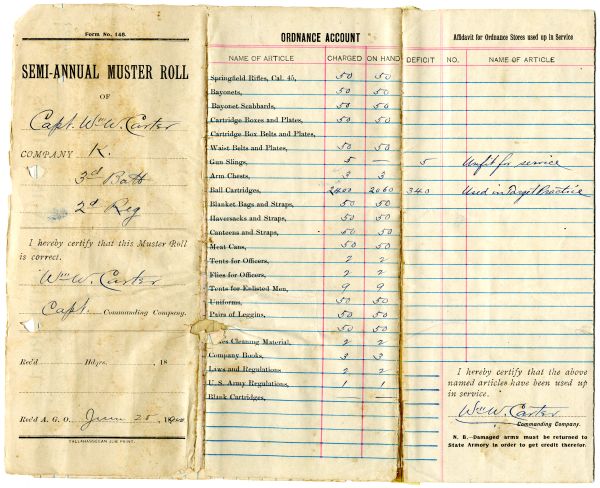 Form No. 148.
SEMI-ANNUAL MUSTER ROLL
OF
Capt. Wm W. Carter
COMPANY K.
3d Batt
2d Reg
I hereby certify that this Muster Roll
is correct.
Wm W. Carter
Capt. Commanding Company.
Rec'd Hdqrs. , 18
Rec'd A. G. O. June 25, 18
TALLAHASSEEAN JOB PRINT.
ORDNANCE ACCOUNT
NAME OF ARTICLE CHARGED ON HAND DEFICIT
Springfield Rifles, Cal. 45, 50 50
Bayonets, 50 50
Bayonet Scabbards, 50 50
Cartridge Boxes and Plates, 50 50
Cartridge Box Belts and Plates,
Waist Belts and Plates, 50 50
Gun Slings, 5 — 5
Arm Chests, 3 3
Ball Cartridges, 2400 2060 340
Blanket Bags and Straps, 50 50
Haversacks and Straps, 50 50
Canteens and Straps, 50 50
Meat Cans, 50 50
Tents for Officers, 2 2
Flies for Officers, 2 2
Tents for Enlisted Men, 9 9
Uniforms, 50 50
Pairs of Leggins, 50 50
50 50
Cleaning Material, 2 2
Company Books, 3 3
Laws and Regulations 2 2
U. S. Army Regulations, 1 1
Blank Cartridges, — —
Affidavit for Ordnance Stores used up in Service
NO. NAME OF ARTICLE
Unfit for service
Used in Target Practice
I hereby certify that the above
named articles have been used up
in service.
Wm W. Carter
Commanding Company.
N. B.—Damaged arms must be returned to
State Armory in order to get credit therefor.